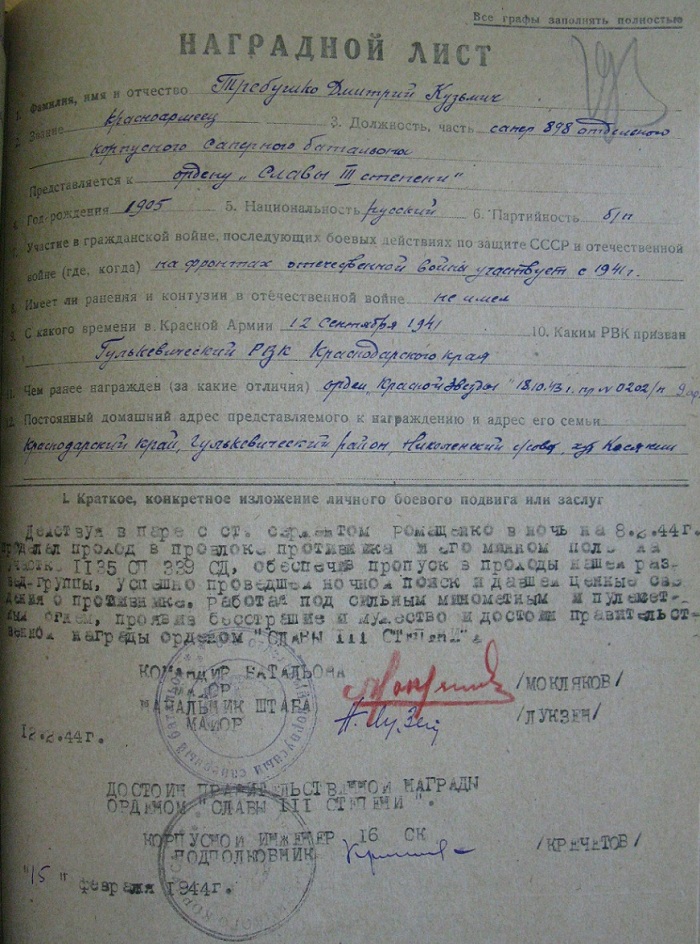 Все графы заполнять полностью
НАГРАДНОЙ ЛИСТ
1. Фамилия, имя и отчество Дмитрий Кузьмич
2. Звание Красноармеец 3. Должность, часть сапер 898 отдельного
корпусного саперного батальона
Представляется к ордену „Славы III степени"
4. Год рождения 1905 5. Национальность русский 6. Партийность б/п
7. Участие в гражданской войне, последующих боевых действиях по защите СССР и отечественной
войне (где, когда) на фронтах отечественной войны участвует с 1941 г.
8. Имеет ли ранения и контузии в отечественной войне не имел
9. С какого времени в Красной Армии 12 сентября 1941 10. Каким РВК призван
Гулькевический РВК Краснодарского края
11. Чем ранее награжден (за какие отличия) орден „Красной Звезды" 18.10.43 г. пр. N 0202/н
12. Постоянный домашний адрес представляемого к награждению и адрес его семьи
Краснодарский край, Гулькевический район,
I. Краткое, конкретное изложение личного боевого подвига или заслуг
Действуя в паре с ст. сержантом РОМАЩЕНКО в ночь на 8.2.44г.
проделал проход в проволоке противника и его минном поле на
участке 1135 СП 339 СД, обеспечив пропуск в проходы нашей раз-
вед-группы, успешно проведшей ночной поиск и давшей ценные све-
дения о противнике. Работая под сильным минометным и пулемет-
ным огнем, проявив бесстрашие и мужество и достоин правительст-
венной награды орденом "СЛАВЫ III СТЕПЕНИ".
КОМАНДИР БАТАЛЬОНА
МАЙОР /МОКЛЯКОВ/
НАЧАЛЬНИК ШТАБА
МАЙОР /ЛУКЗЕН/
12.2.44г.
ДОСТОИН ПРАВИТЕЛЬСТВЕННОЙ НАГРАДЫ
ОРДЕНОМ "СЛАВЫ III СТЕПЕНИ".
КОРПУСНОЙ ИНЖЕНЕР 16 СК
ПОДПОЛКОВНИК /КРЕЧЕТОВ/
"15" февраля 1944г.